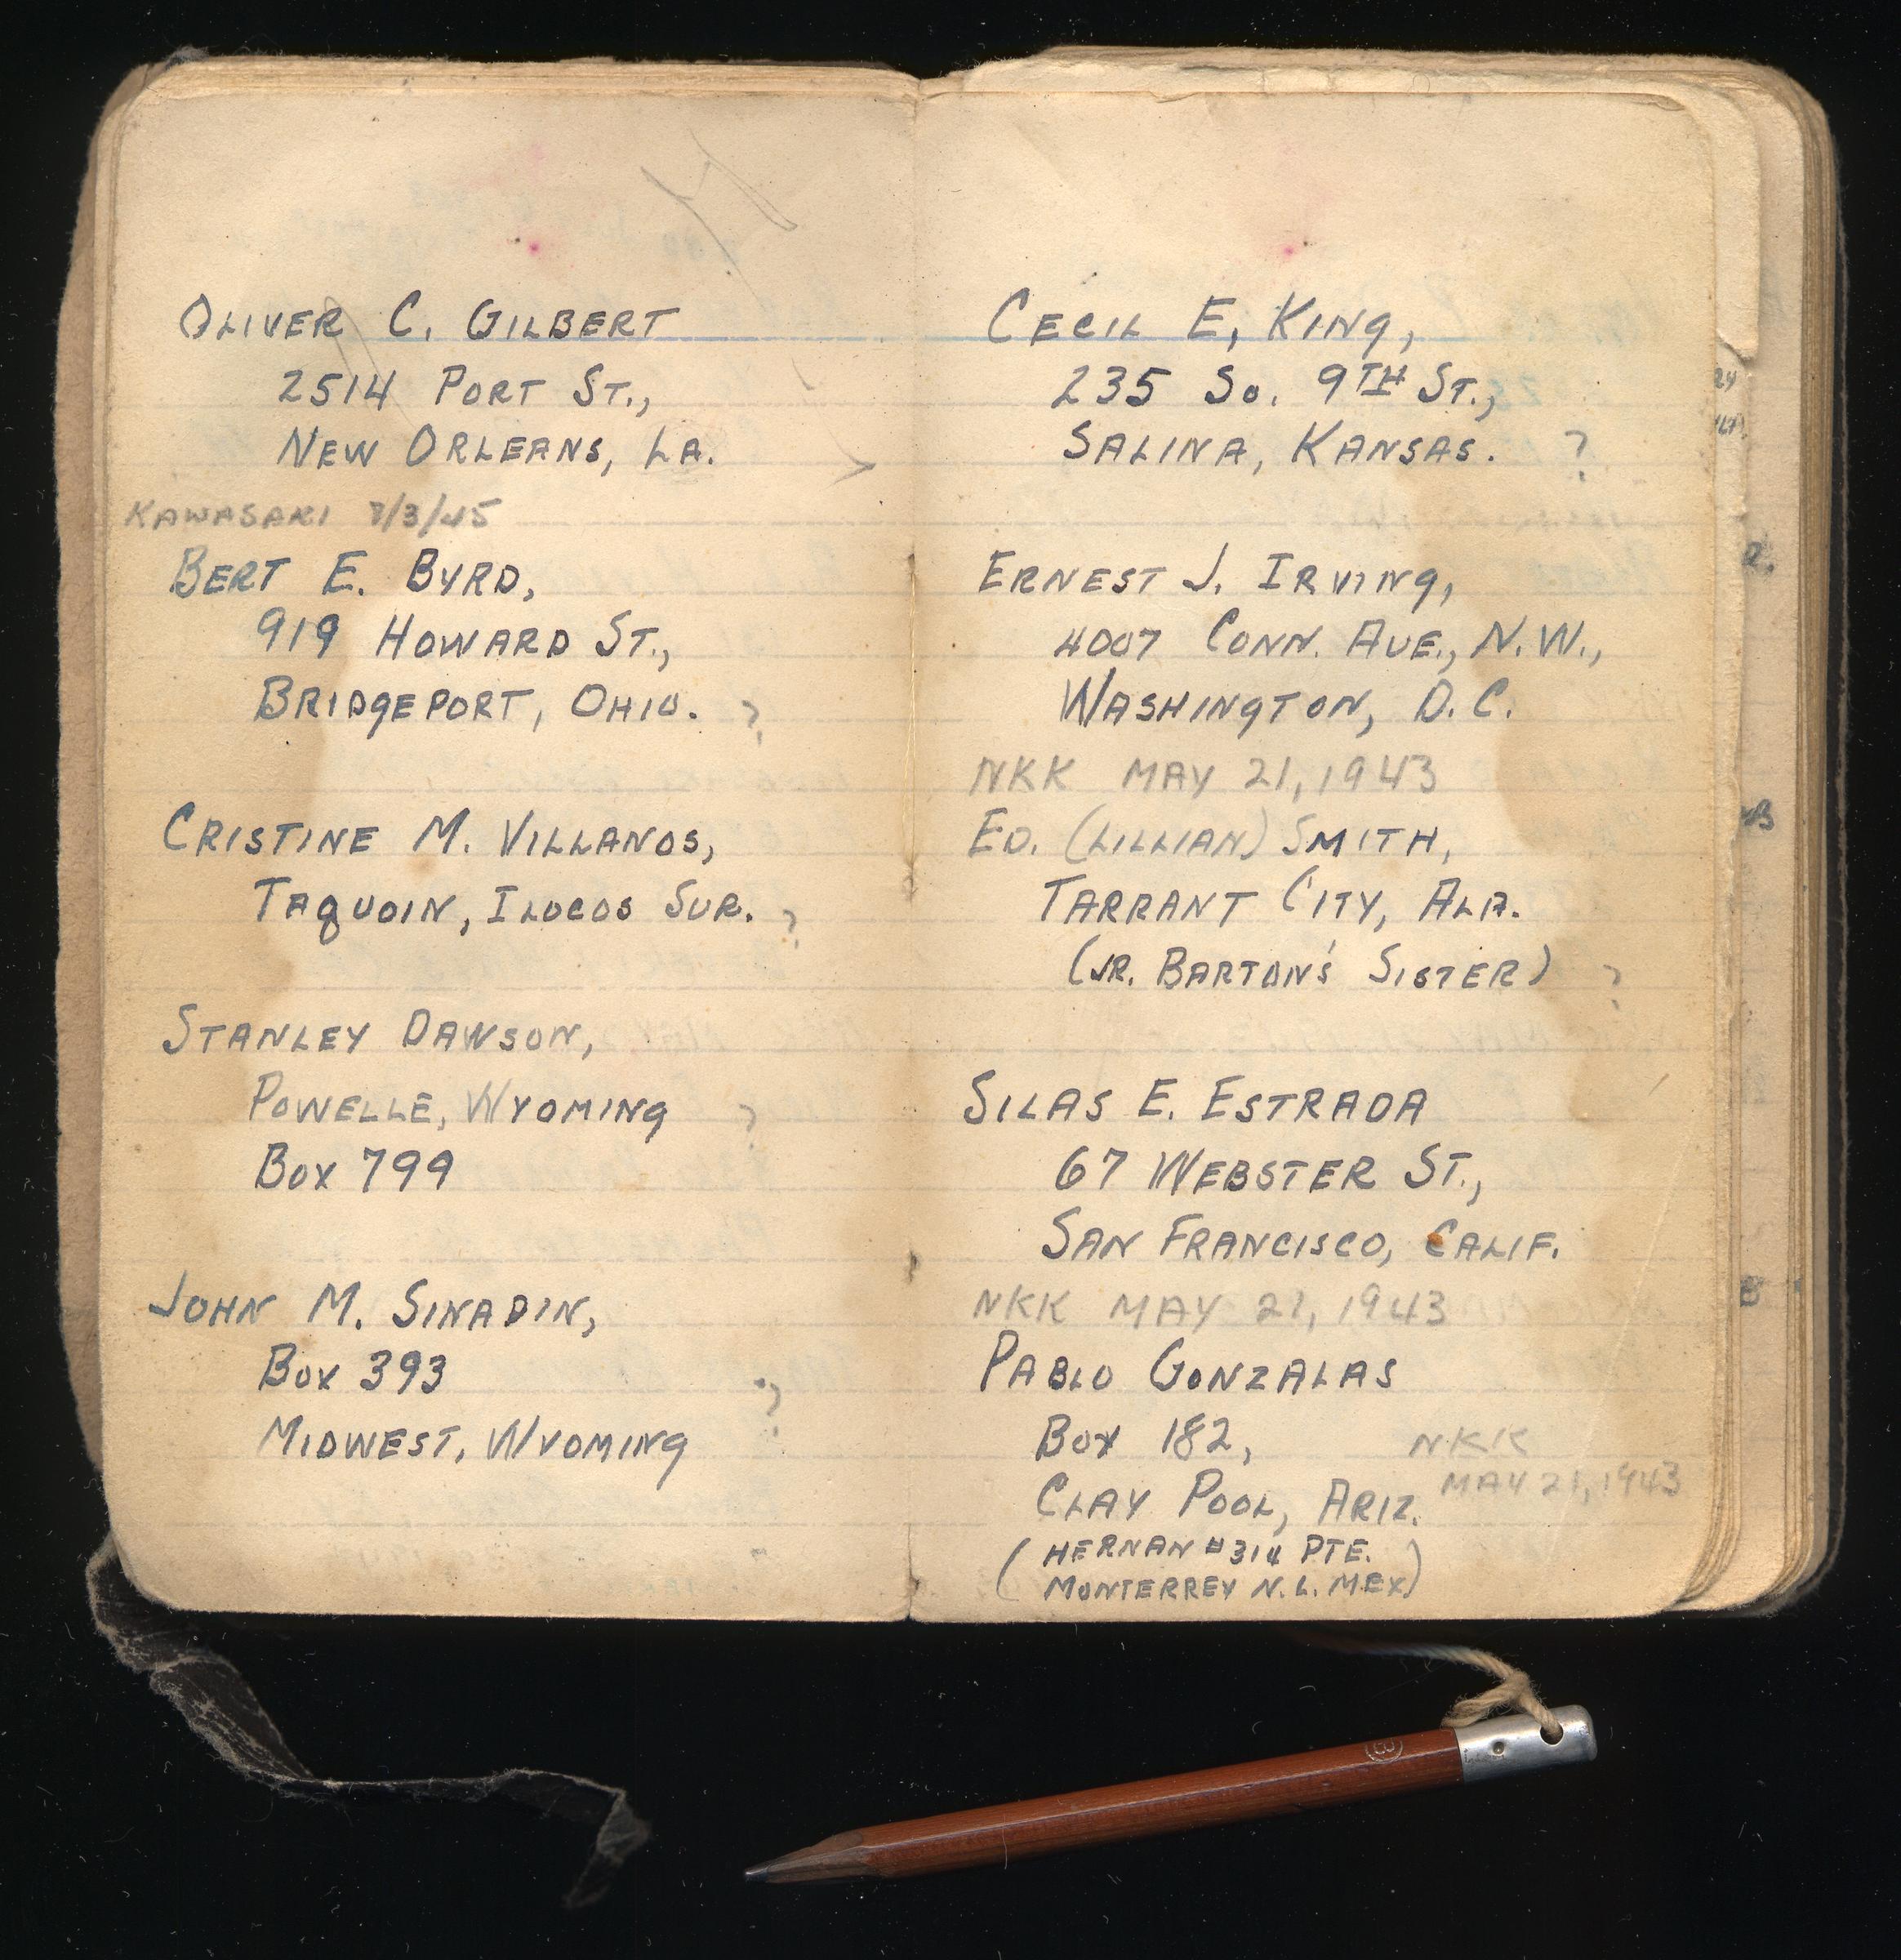 OLIVER C. GILBERT
2514 PORT ST.,
NEW ORLEANS, LA.
KAWASAKI 7/3/45
BERT E. BYRD,
919 HOWARD ST.,
BRIDGEPORT, OHIO. ?
CRISTINE M. VILLANOS,
TAQUDIN, ILOCOS SUR. ?
STANLEY DAWSON,
POWELLE, WYOMING ?
BOX 799
JOHN M. SINADIN,
BOX 393 ?
MIDWEST, WYOMING
CECIL E, KING,
235 SO. 9TH ST.,
SALINA, KANSAS. ?
ERNEST J. IRVING,
4007 CONN. AVE., N.W.,
WASHINGTON, D.C.
NKK MAY 21, 1943
ED. (LILLIAN) SMITH,
TARRANT CITY, ALA.
(JR. BARTON'S SISTER) ?
SILAS E. ESTRADA
67 WEBSTER ST.,
SAN FRANCISCO, CALIF.
NKK MAY 21, 1943
PABLO GONZALAS
BOX 182, NKK
CLAY POOL, ARIZ. MAY 21, 1943
(HERNAN #314 PTE.
MONTERREY N.L. MEX)